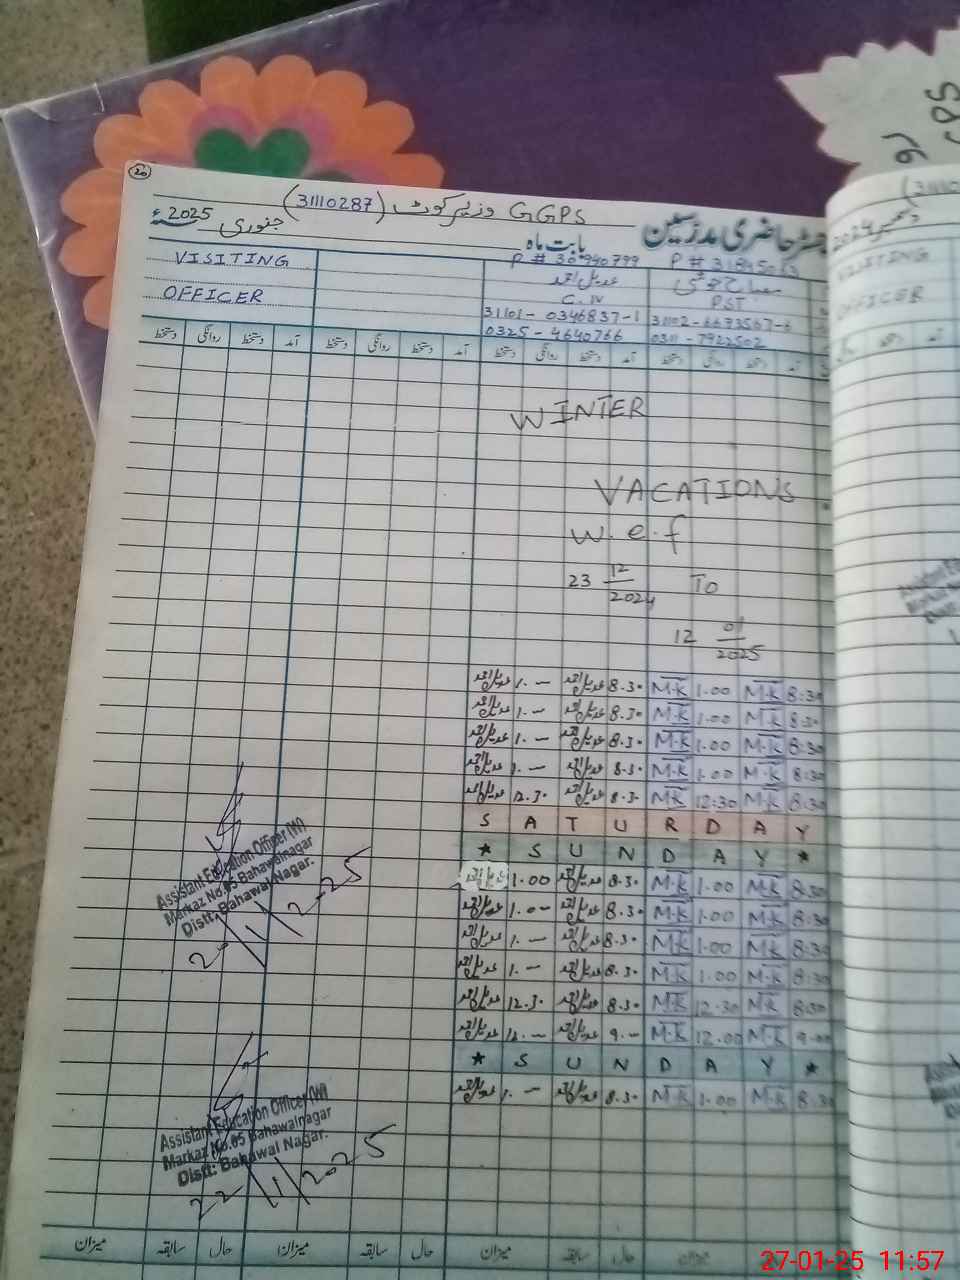 20
GGPS وزیر کوٹ (31110287)
رجسٹر حاضری مدرسین
بابت ماہ جنوری 2025ء
VISITING
OFFICER
P # 30940799
عدیل احمد
31101-0346837-1
0325-4640766
P # 31845063
PST
0311-7922502
آمد دستخط روانگی دستخط آمد دستخط روانگی دستخط آمد دستخط روانگی دستخط آمد دستخط روانگی دستخط
WINTER
VACATIONS
w.e.f
23 12/2024 To
12 01/2025
8:30 M.K 1.00 M.K 8.30 عدیل احمد 1.— عدیل احمد
8:30 M.K 1.00 M.K 8.30 عدیل احمد 1.— عدیل احمد
8:30 M.K 1.00 M.K 8.30 عدیل احمد 1.— عدیل احمد
8:30 M.K 1.00 M.K 8.30 عدیل احمد 1.— عدیل احمد
8:30 M.K 12:30 M.K 8.30 عدیل احمد 12.30 عدیل احمد
SATURDAY
* SUNDAY *
8:30 M.K 1.00 M.K 8.30 عدیل احمد 1.00 عدیل احمد
8:30 M.K 1.00 M.K 8.30 عدیل احمد 1.0— عدیل احمد
8:30 M.K 1.00 M.K 8.30 عدیل احمد 1.— عدیل احمد
8:30 M.K 1.00 M.K 8.30 عدیل احمد 1.— عدیل احمد
8:30 M.K 12.30 M.K 8.30 عدیل احمد 12.30 عدیل احمد
9.00 M.K 12.00 M.K 9.— عدیل احمد 12.— عدیل احمد
* SUNDAY *
8:30 M.K 1.00 M.K 8.30 عدیل احمد 1.— عدیل احمد
Assistant Education Officer (W)
Markaz No.05 Bahawalnagar
Distt: Bahawal Nagar.
Assistant Education Officer (W)
Markaz No.05 Bahawalnagar
Distt: Bahawal Nagar.
22/1/2025
حال سابقہ میزان حال سابقہ میزان حال سابقہ میزان
دسمبر 2024
VISITING
OFFICER
27-01-25 11:57